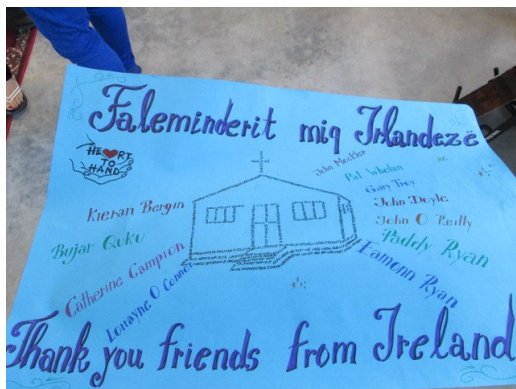 Faleminderit miq Irlandezë
HE RT
TO
HAND
Kieran Bergin
Bujar Quku
Catherine Campion
Lorrayne O Connor
John Meckler
Pat Whelan
Gary Troy
John Doyle
John O Reilly
Paddy Ryan
Eamonn Ryan
Thank you friends from Ireland